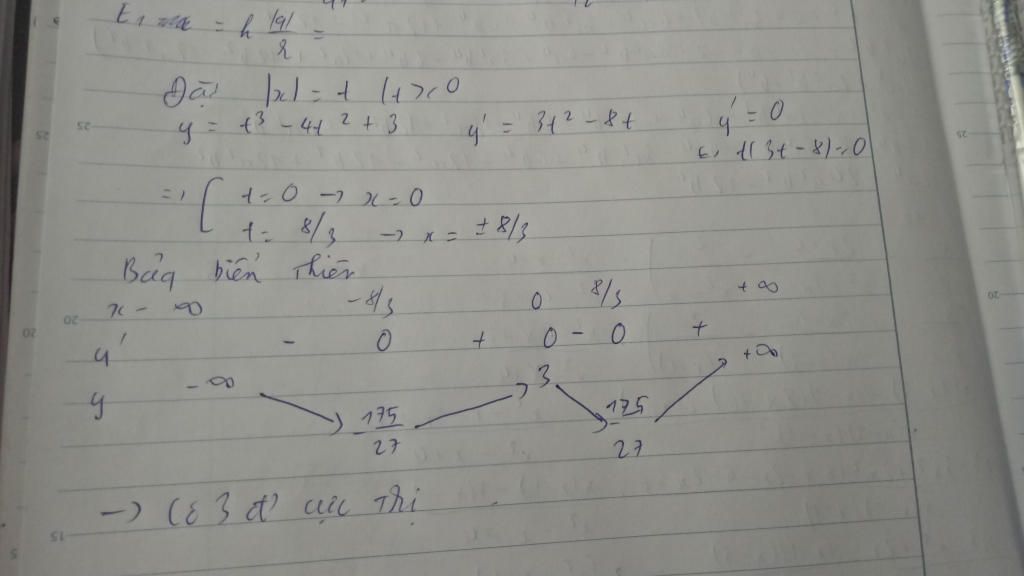 E1 max = k |q| / r =
Đặt |x| = t (t > 0
y = t³ - 4t² + 3 y' = 3t² - 8t y' = 0
t(3t - 8) = 0
=> [ t = 0 → x = 0
t = 8/3 → x = ± 8/3
Bảg biến thiên
x - ∞ -8/3 0 8/3 + ∞
y' - 0 + 0 - 0 +
y - ∞ -175/27 3 -175/27 +∞
→ Có 3 đ' cực thị